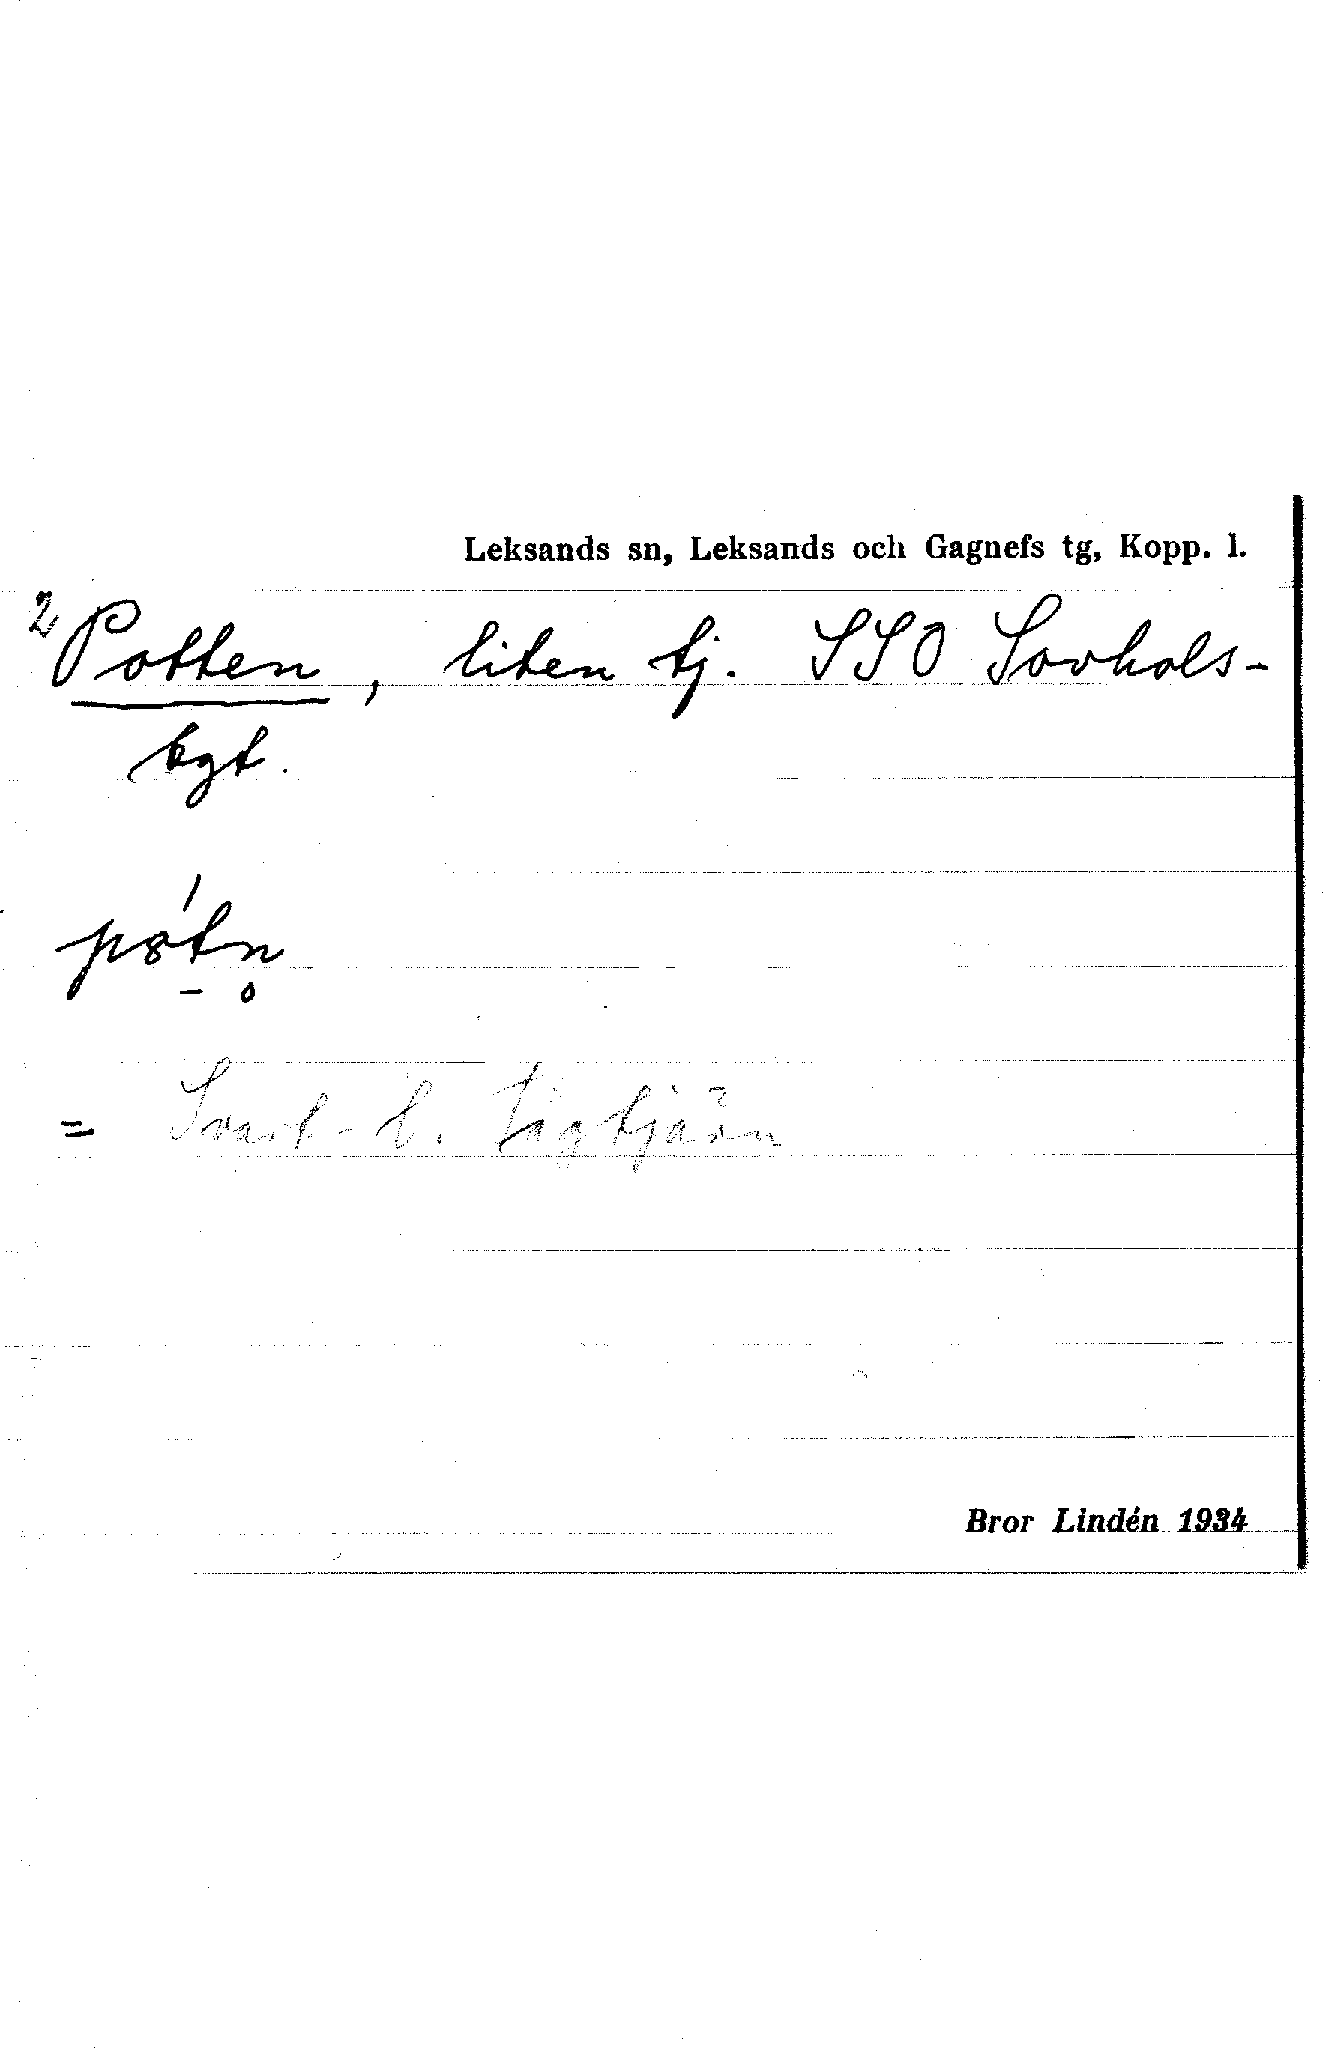 Leksands sn, Leksands och Gagnefs tg, Kopp. l.
2 Potten, liten tj. SSO Sovhols-
bgt.
= Svart- l. Tågtjärn
Bror Lindén 1934